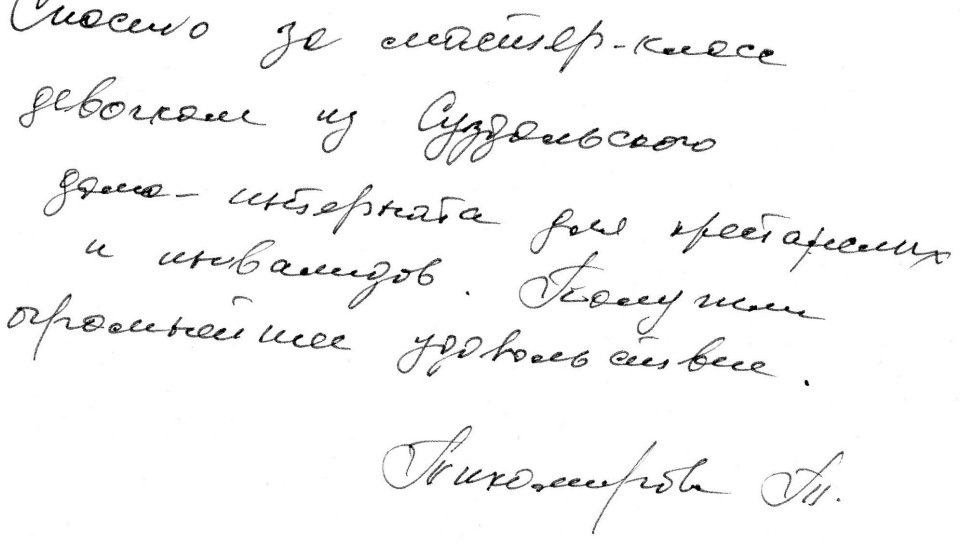 Спасибо за мастер-класс
девочкам из Суздальского
дома-интерната для престарелых
и инвалидов. Получили
огромнейшее удовольствие.
Тихомирова Т.